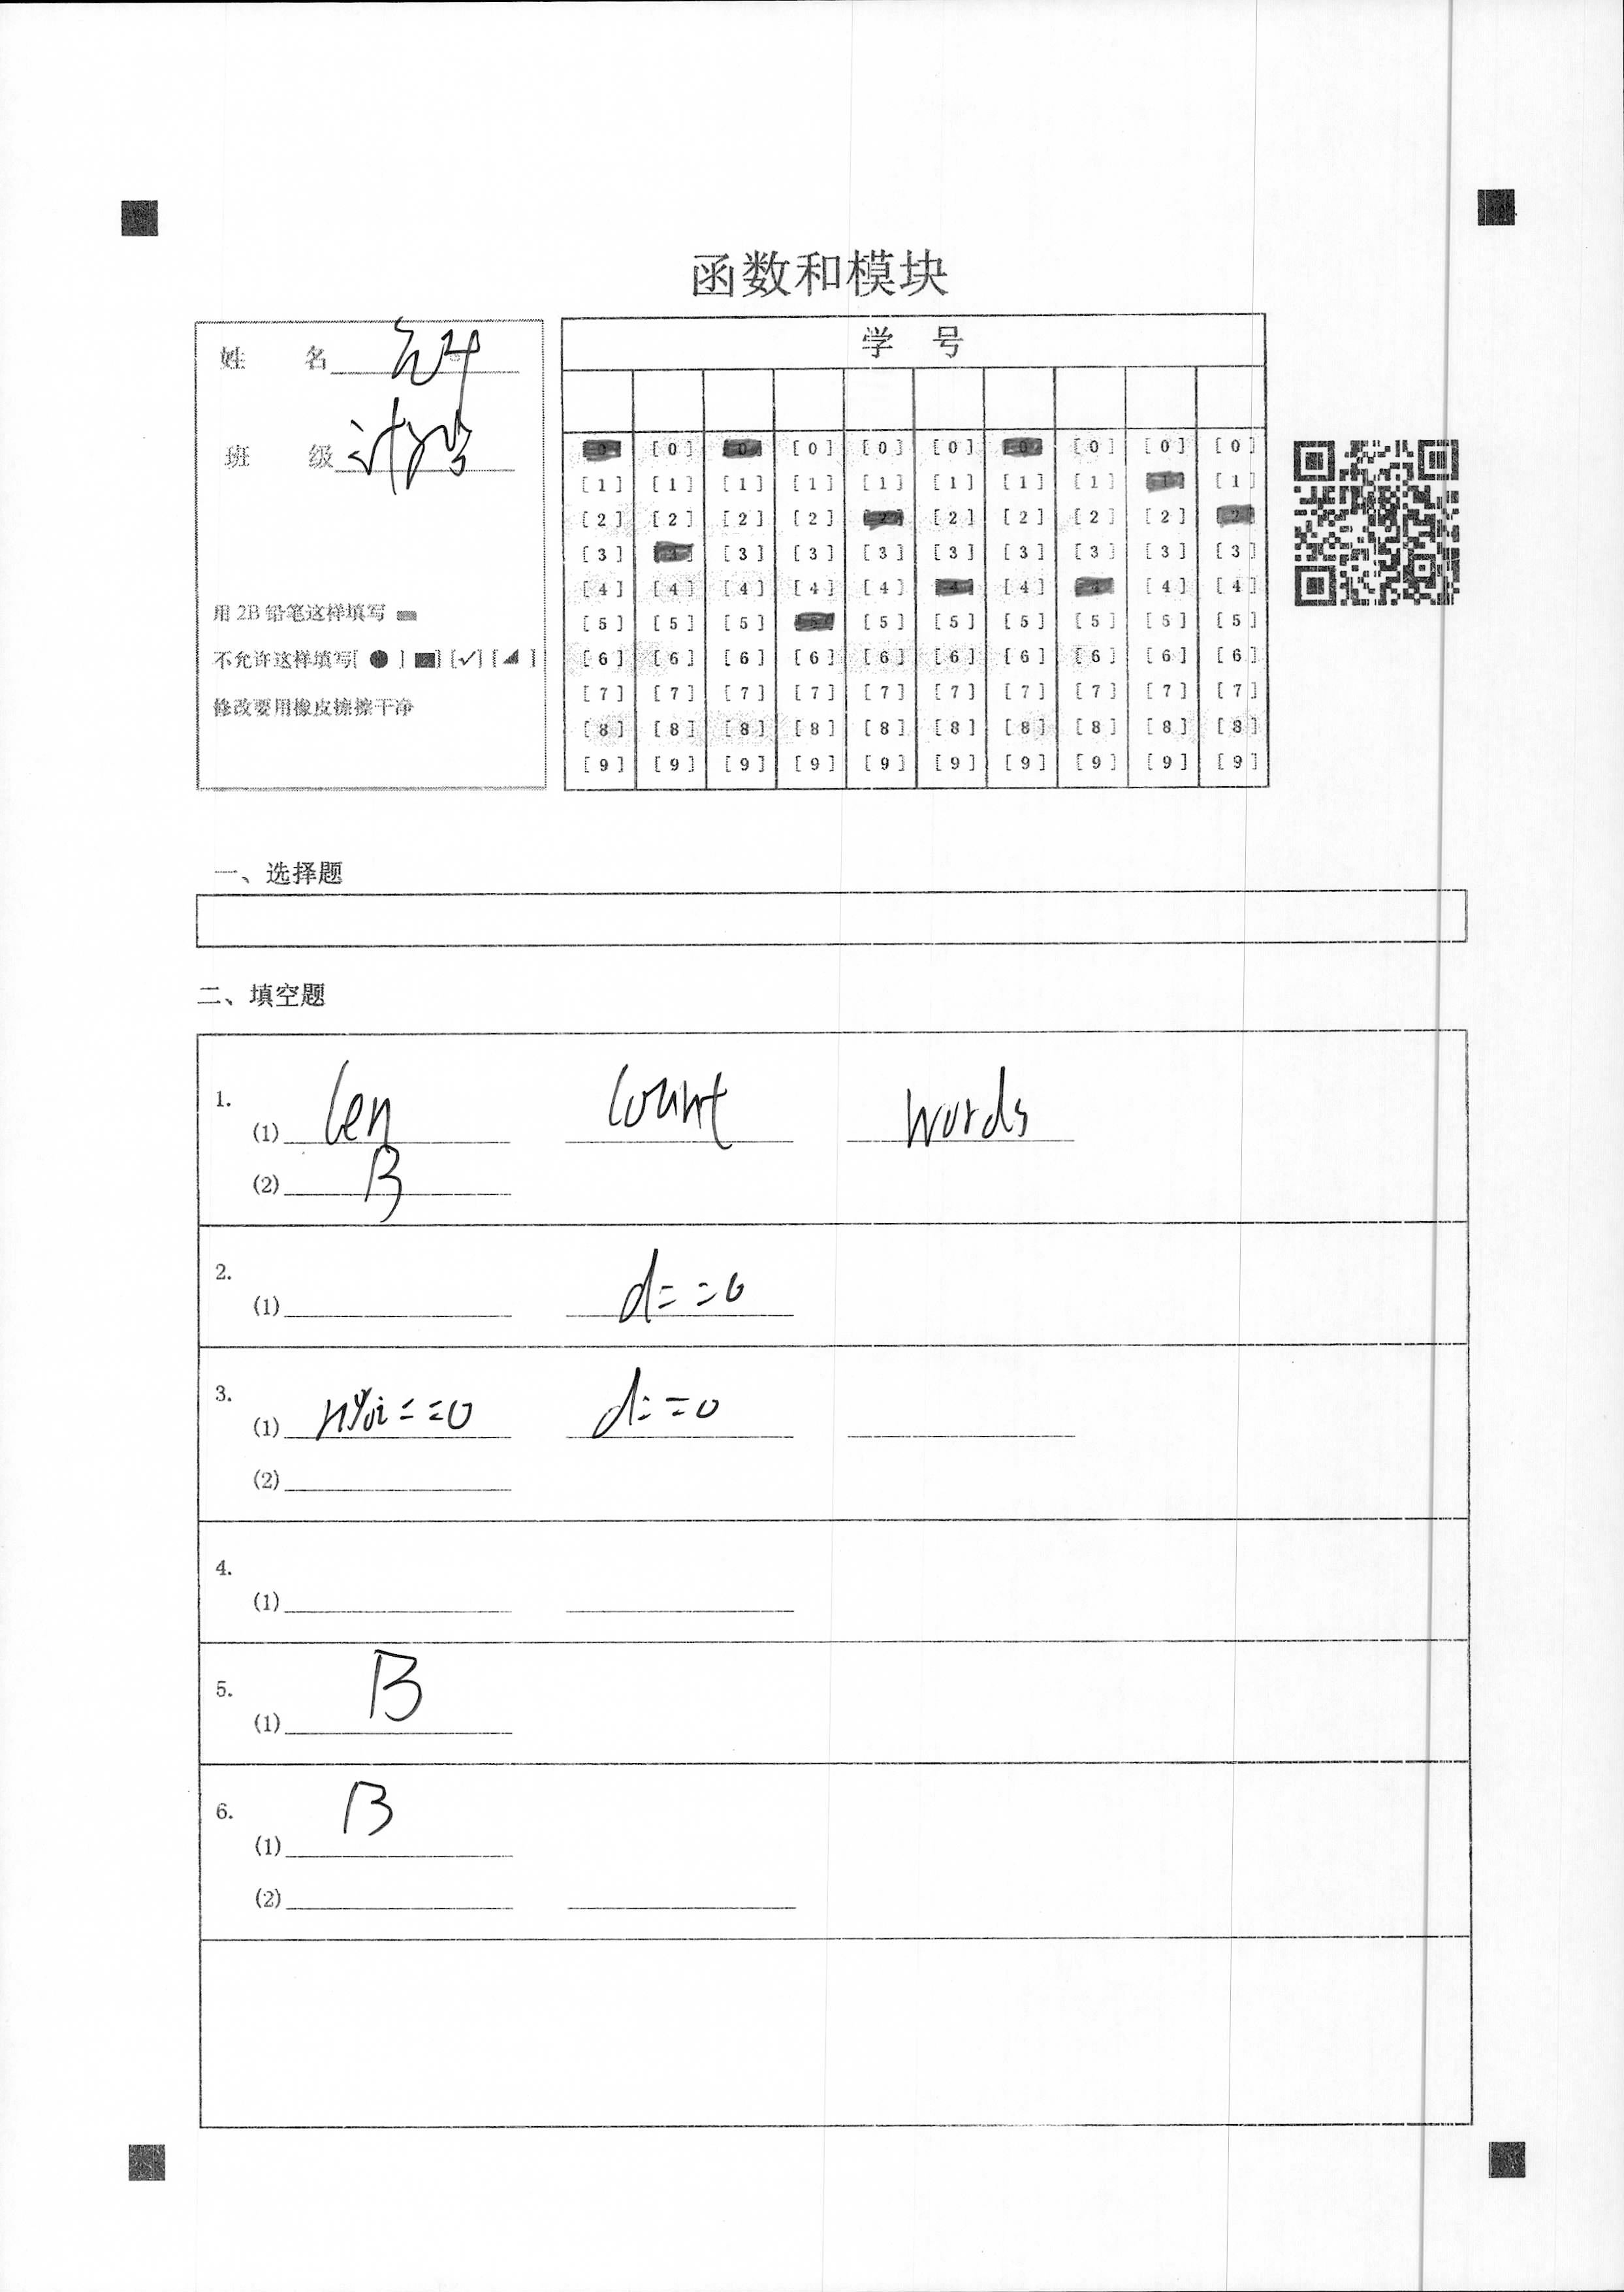 函数和模块
姓 名
班 级
用 2B 铅笔这样填写
不允许这样填写[ ● ] [■] [✓] [◢ ]
修改要用橡皮擦擦干净
学 号
[0] [0] [0] [0] [0] [0] [0] [0] [0] [0]
[1] [1] [1] [1] [1] [1] [1] [1] [1] [1]
[2] [2] [2] [2] [2] [2] [2] [2] [2] [2]
[3] [3] [3] [3] [3] [3] [3] [3] [3] [3]
[4] [4] [4] [4] [4] [4] [4] [4] [4] [4]
[5] [5] [5] [5] [5] [5] [5] [5] [5] [5]
[6] [6] [6] [6] [6] [6] [6] [6] [6] [6]
[7] [7] [7] [7] [7] [7] [7] [7] [7] [7]
[8] [8] [8] [8] [8] [8] [8] [8] [8] [8]
[9] [9] [9] [9] [9] [9] [9] [9] [9] [9]
一、选择题
二、填空题
1.
(1) len count words
(2) B
2.
(1) d==0
3.
(1) n%i==0 d==0
(2)
4.
(1)
5.
(1) B
6.
(1) B
(2)